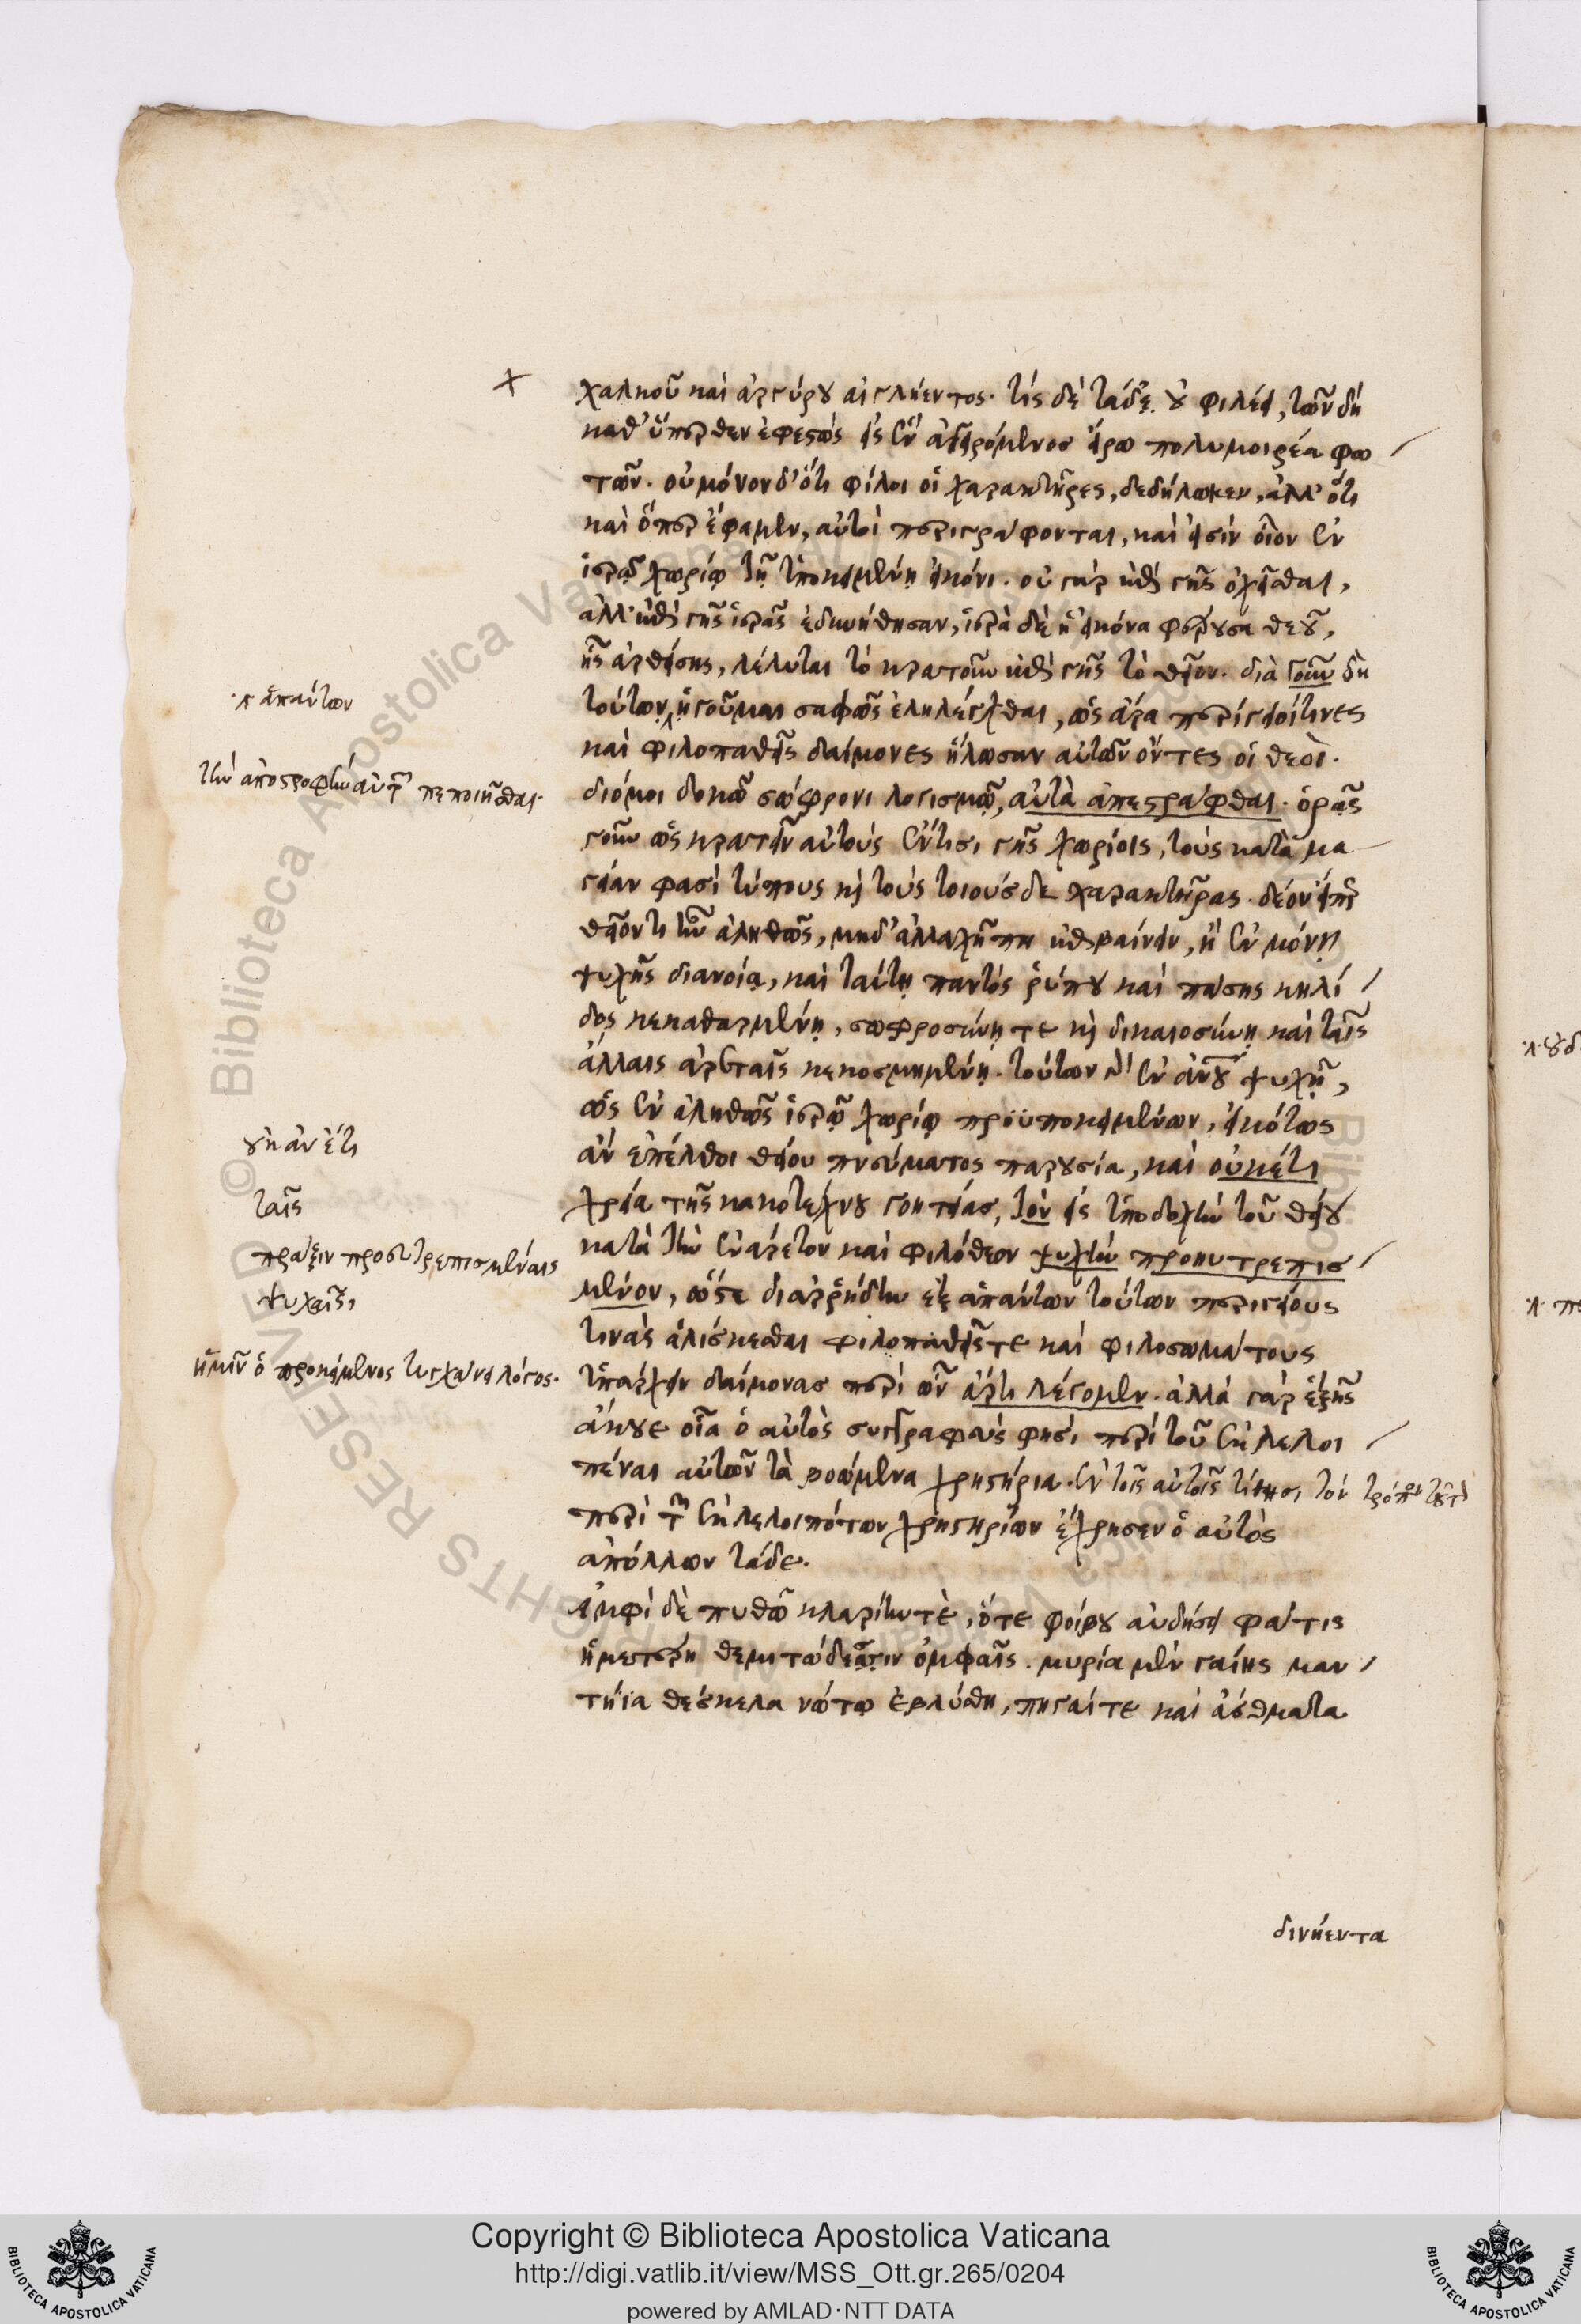 χαλκοῦ καὶ ἀργύρου αἰγλήεντος. τίς δὲ τάδε οὐ φιλέει, τῶν δὴ
καθύπερθεν ἐφεστὼς εἰς ἓν ἀγειρόμενος εἴρω πολυμοιρέα φω
τῶν. οὐ μόνον δ' ὅτι φίλοι οἱ χαρακτῆρες, δεδήλωκεν, ἀλλ' ὅτι
καὶ ὅπερ ἔφαμεν, αὐτοὶ περιγράφονται, καὶ εἰσὶν οἷον ἐν
ἱερῷ χωρίῳ τῇ ὑποκειμένῃ εἰκόνι. οὐ γὰρ ἐπὶ γῆς ὀχεῖσθαι,
ἀλλ' ἐπὶ γῆς ἱερᾶς ἐδυνήθησαν, ἱερὰ δὲ ἡ εἰκόνα φέρουσα θεοῦ,
ἧς ἀρθείσης, λέλυται τὸ κρατοῦν ἐπὶ γῆς τὸ θεῖον. διὰ γοῦν δὴ
τούτων, ἡγοῦμαι σαφῶς ἐληλέγχθαι, ὡς ἄρα περίγειοί τινες
καὶ φιλοπαθεῖς δαίμονες ἥλωσαν αὐτῶν ὄντες οἱ θεοί.
διό μοι δοκῶ σώφρονι λογισμῷ, αὐτὰ ἀπεστράφθαι. ὁρᾷς
γοῦν ὡς κρατεῖν αὐτοὺς ἔν τισι γῆς χωρίοις, τοὺς κατὰ μα
γείαν φασὶ τύπους καὶ τοὺς τοιούσδε χαρακτῆρας. δέον εἴπερ
θεῖόν τι ἦν ἀληθῶς, μηδ' ἀλλαχῆ πη ἐπιβαίνειν, ἢ ἐν μόνῃ
ψυχῆς διανοίᾳ, καὶ ταύτῃ παντὸς ῥύπου καὶ πάσης κηλί
δος κεκαθαρμένῃ, σωφροσύνῃ τε καὶ δικαιοσύνῃ καὶ ταῖς
ἄλλαις ἀρεταῖς κεκοσμημένῃ. τούτων δ' ἐν ἀνου ψυχῇ,
ὡς ἐν ἀληθῶς ἱερῷ χωρίῳ προϋποκειμένων, εἰκότως
ἂν ἐπέλθοι θείου πνεύματος παρουσία, καὶ οὐκέτι
χρεία τῆς κακοτέχνου γοητείας, τὸν εἰς ὑποδοχὴν τοῦ θείου
κατὰ τὴν ἐνάρετον καὶ φιλόθεον ψυχὴν προηυτρεπισ
μένον, ὥστε διαρρήδην ἐξ ἁπάντων τούτων περιγείους
τινὰς ἁλίσκεσθαι φιλοπαθεῖς τε καὶ φιλοσωμάτους
ὑπάρχειν δαίμονας περὶ ὧν ἄρτι λέγομεν. ἀλλὰ γὰρ ἑξῆς
ἄκουε οἷα ὁ αὐτὸς συγγραφεύς φησι περὶ τοῦ ἐκλελοι
πέναι αὐτῶν τὰ βοώμενα χρηστήρια. ἐν τοῖς αὐτοῖς τίθησι τὸν τρόπον
περὶ τῶν ἐκλελοιπότων χρηστηρίων ἔχρησεν ὁ αὐτὸς
ἀπόλλων τάδε.
ἀμφὶ δὲ πυθῶ κλαρίην τὲ, ὅτε φοίβου αὐδήσει φάτις
ἡμετέρη θεμιτώδεσιν ὀμφαῖς. μυρία μὲν γαίης μαν
τήϊα θέσκελα νώτῳ ἐβλύσθη, πηγαί τε καὶ ἄσθματα
δινήεντα
ἁπάντων
τὴν ἀποστροφὴν αὐτῶν πεποιῆσθαι.
οὐκ ἂν ἔτι
ταῖς
πρᾶξιν προευτρεπισμέναις
ψυχαῖσι
ἡμῖν ὁ προκείμενος τυγχάνει λόγος.
Copyright © Biblioteca Apostolica Vaticana
http://digi.vatlib.it/view/MSS_Ott.gr.265/0204
powered by AMLAD·NTT DATA
BIBLIOTECA APOSTOLICA VATICANA
BIBLIOTECA APOSTOLICA VATICANA